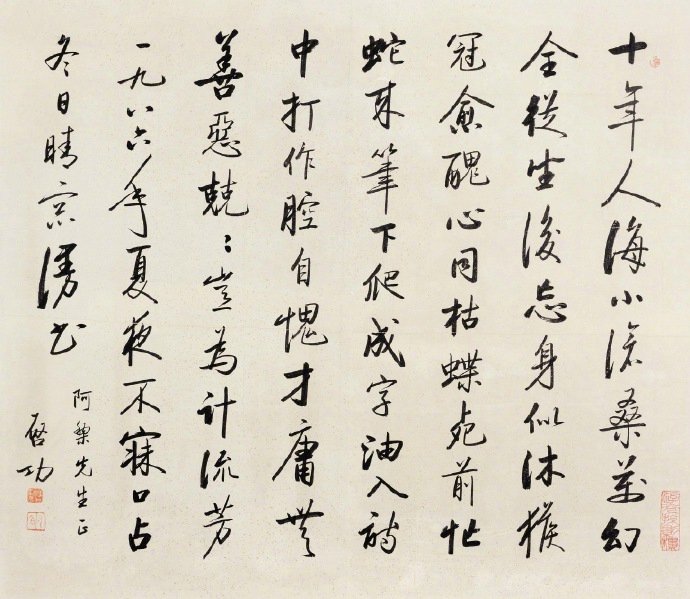 十年人海小滄桑萬幻
全從生後忘身似沐猴
冠愈醜心同枯蝶死前忙
蛇來筆下爬成字油入詩
中打作腔自愧才庸無
善惡兢〻豈為計流芳
一九八六年夏夜不寐口占
冬日晴窗漫書
阿黎先生正
啓功